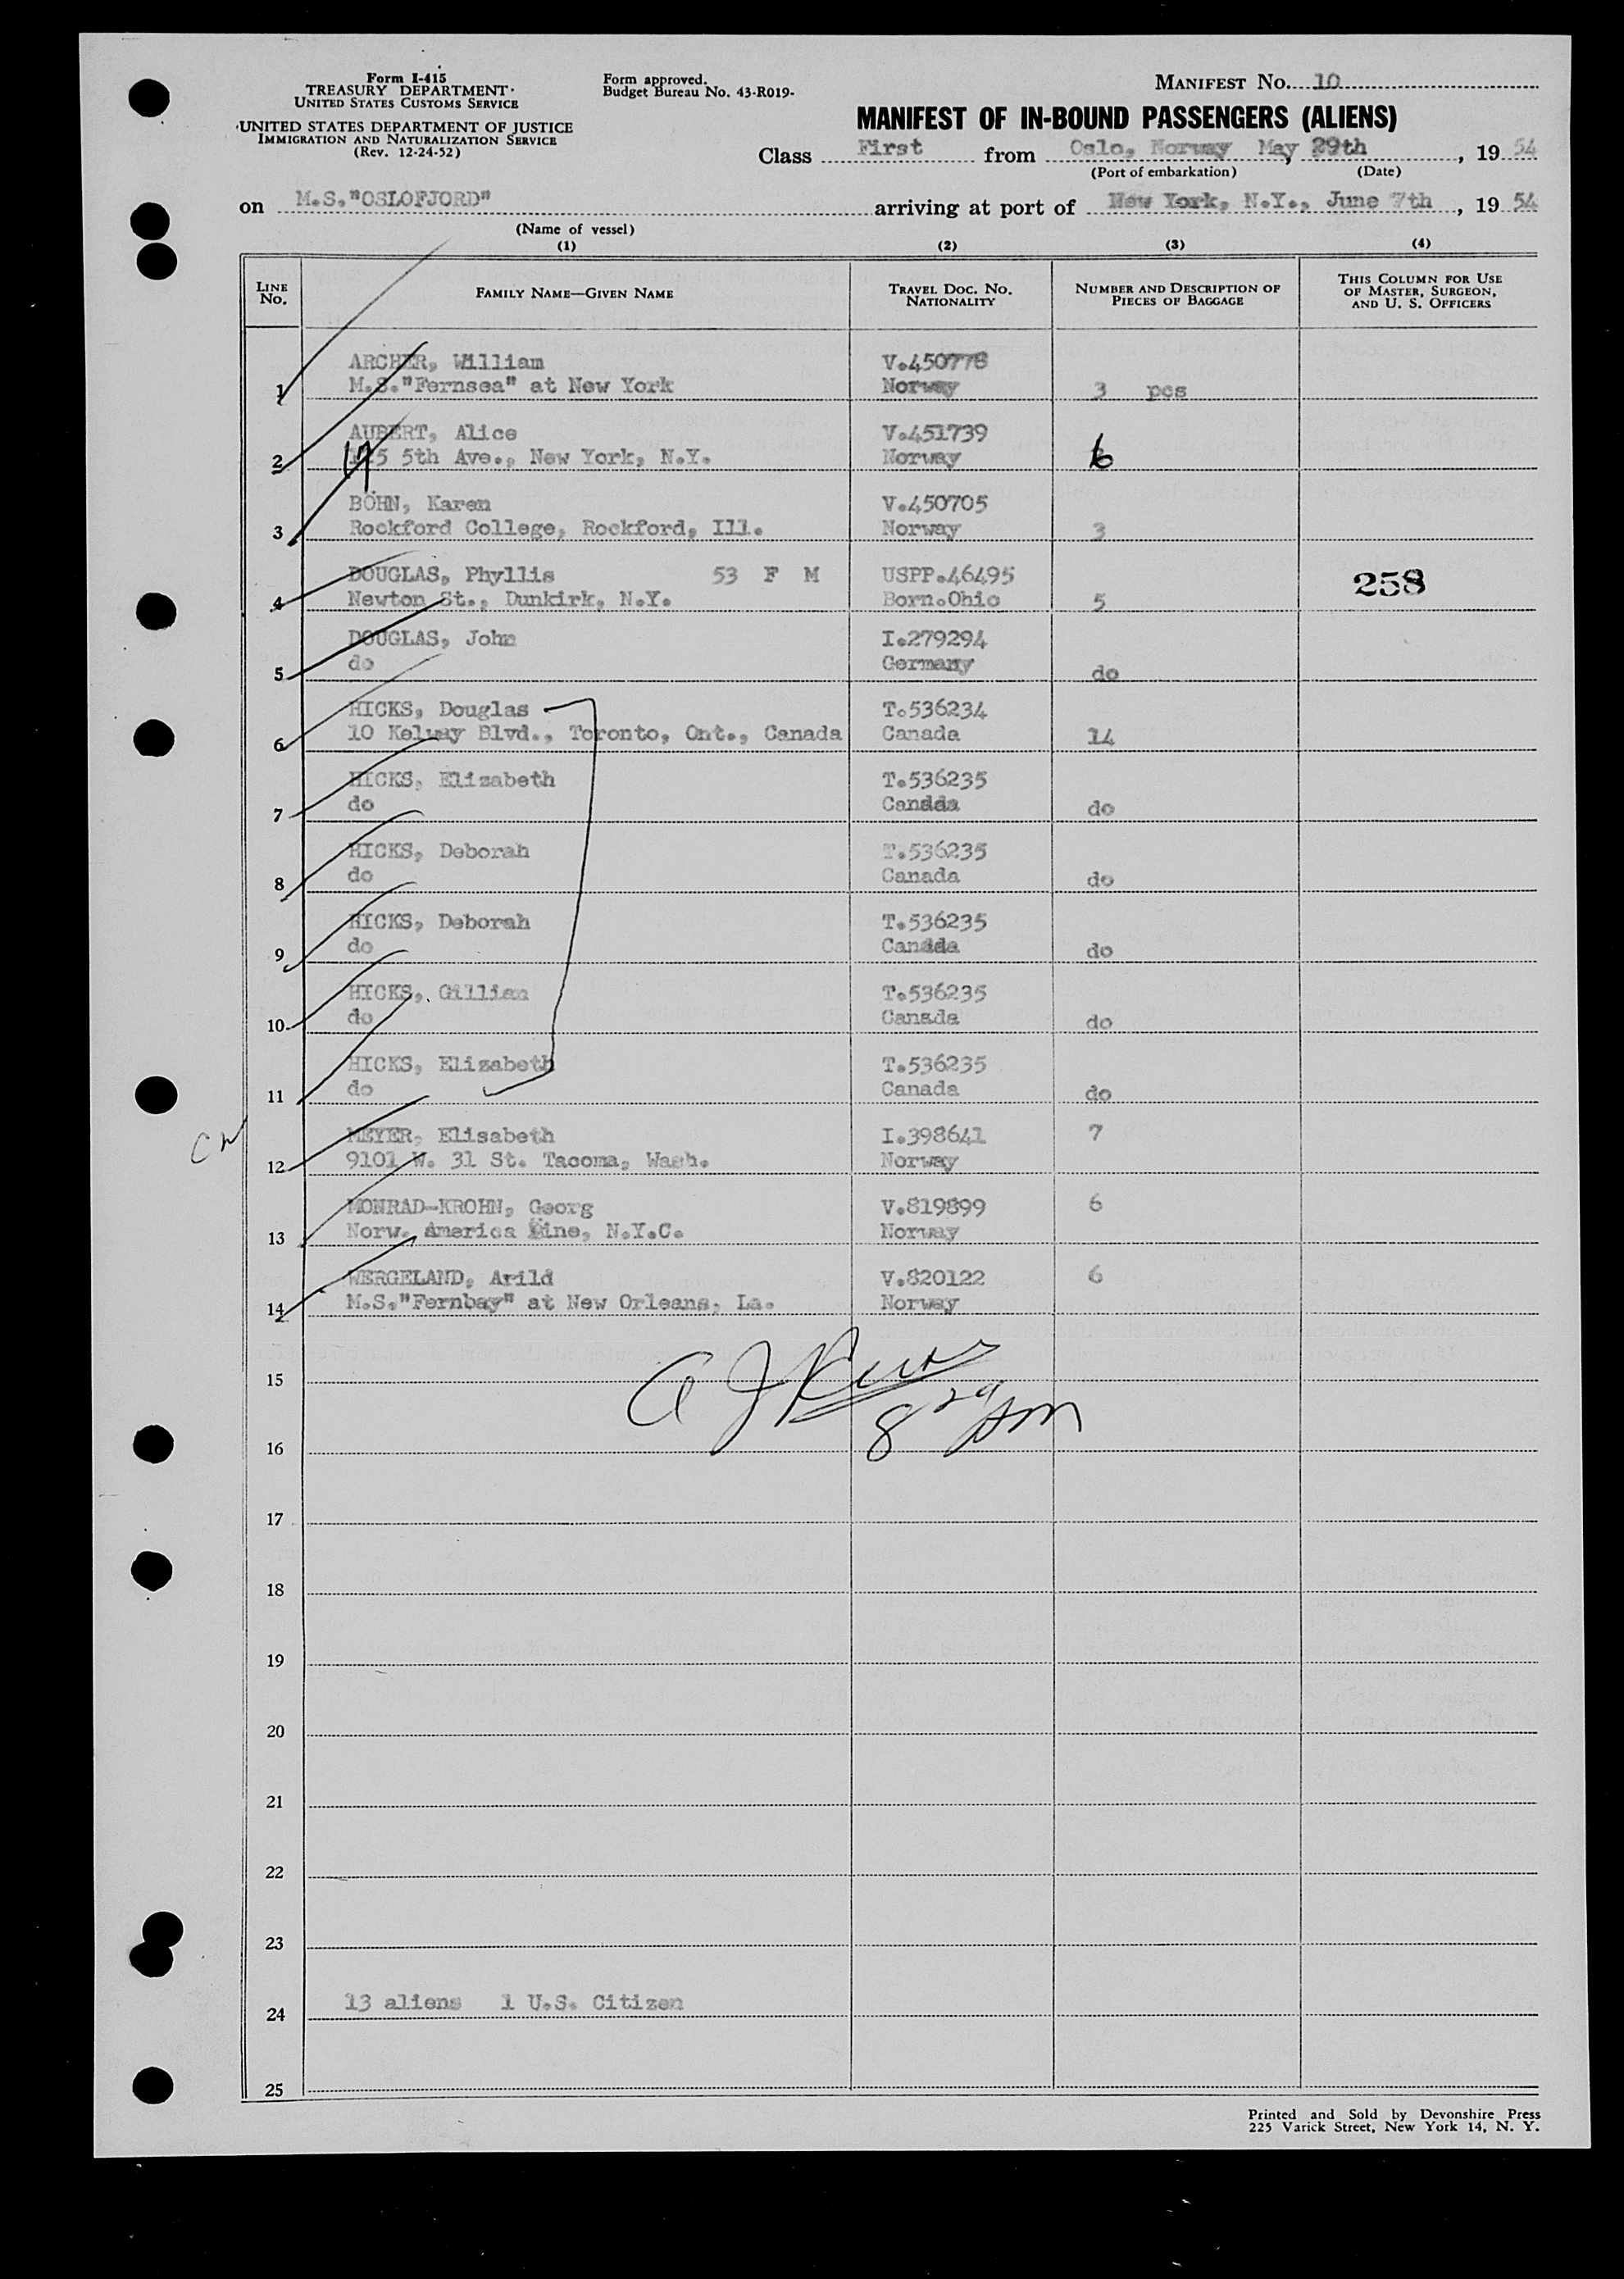 Form I-415
TREASURY DEPARTMENT
UNITED STATES CUSTOMS SERVICE
UNITED STATES DEPARTMENT OF JUSTICE
IMMIGRATION AND NATURALIZATION SERVICE
(Rev. 12-24-52)
Form approved.
Budget Bureau No. 43-R019-
MANIFEST No. 10
MANIFEST OF IN-BOUND PASSENGERS (ALIENS)
Class First from Oslo, Norway May 29th, 19 54
(Port of embarkation) (Date)
on M.S."OSLOFJORD" arriving at port of New York, N.Y., June 7th, 19 54
(Name of vessel)
(1) (2) (3) (4)
LINE No. FAMILY NAME—GIVEN NAME TRAVEL DOC. No. NATIONALITY NUMBER AND DESCRIPTION OF PIECES OF BAGGAGE THIS COLUMN FOR USE OF MASTER, SURGEON, AND U. S. OFFICERS
ARCHER, William V.450778
1 M.S."Fernsea" at New York Norway 3 pcs
AUBERT, Alice V.451739
2 5th Ave., New York, N.Y. Norway 6
BÖHN, Karen V.450705
3 Rockford College, Rockford, Ill. Norway 3
DOUGLAS, Phyllis 53 F M USPP.46495 258
4 Newton St., Dunkirk, N.Y. Born.Ohio 5
DOUGLAS, John I.279294
5 do Germany do
HICKS, Douglas T.536234
6 10 Kelway Blvd., Toronto, Ont., Canada Canada 14
HICKS, Elizabeth T.536235
7 do Canada do
HICKS, Deborah T.536235
8 do Canada do
HICKS, Deborah T.536235
9 do Canada do
HICKS, Gillian T.536235
10 do Canada do
HICKS, Elizabeth T.536235
11 do Canada do
MEYER, Elisabeth I.398641 7
12 9101 W. 31 St. Tacoma, Wash. Norway
MONRAD-KROHN, Georg V.819899 6
13 Norw. America Line, N.Y.C. Norway
WERGELAND, Arild V.820122 6
14 M.S."Fernbay" at New Orleans, La. Norway
15
8 29 AM
16
17
18
19
20
21
22
23
24 13 aliens 1 U.S. Citizen
25
Printed and Sold by Devonshire Press
225 Varick Street, New York 14, N. Y.